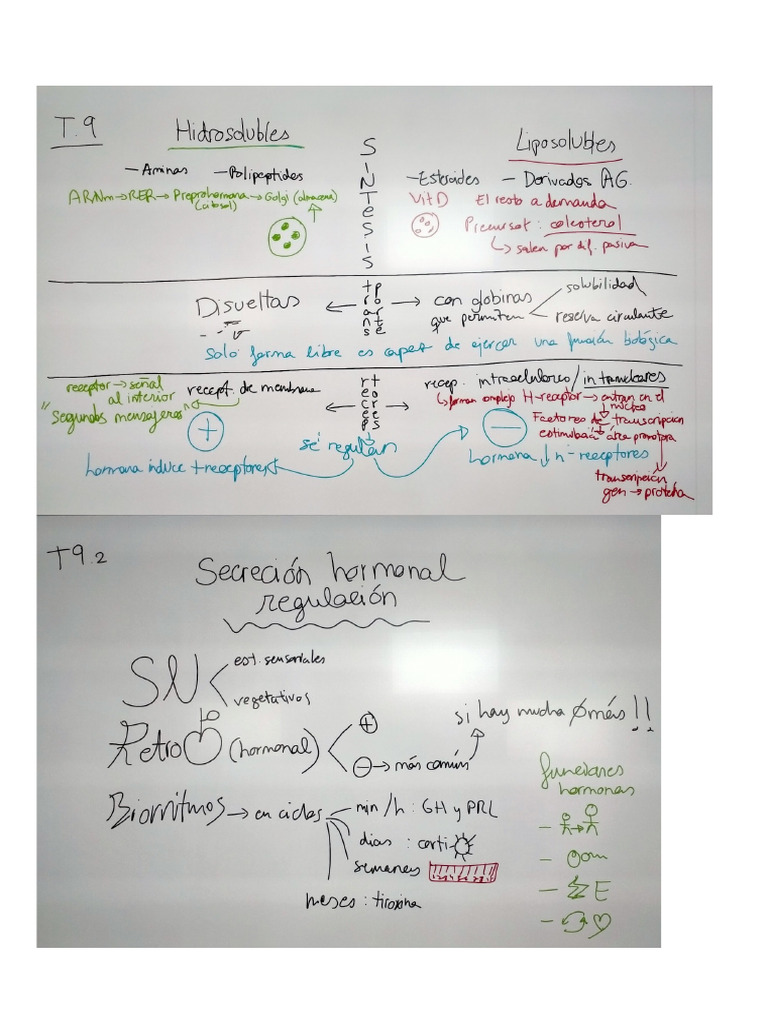 T.9
Hidrosolubles
SINTESIS
Liposolubles
- Aminas - Polipeptides
- Esteroides - Derivados AG.
ARNm → RER → Preprohormona → Golgi (almacena)
(citosol)
Vit D El resto a demanda
Precursor : colesterol
↳ salen por dif. pasiva
Disueltas
transporte
con globinas
que permiten
solubilidad
reserva circulante
Solo forma libre es capaz de ejercer una función biológica
receptor → señal
al interior
"segundos mensajeros"
recept. de membrana
receptores
recep. intracelulares / intranucleares
↳ forman complejo H-receptor → entran en el
núcleo
Factores de transcripción
estimulan área promotora
+
se regulan
−
hormona induce + receptores
hormona ↓ nº receptores
transcripción
gen → proteína
T9.2
Secreción hormonal
regulación
SN
est. sensoriales
vegetativos
Retro (hormonal)
+
− → más común
si hay mucha Ø más!!
Biorritmos → en ciclos
min/h : GH y PRL
dias : corti
semanas
meses : tiroxina
funciones
hormonas
-
- om
- E
-